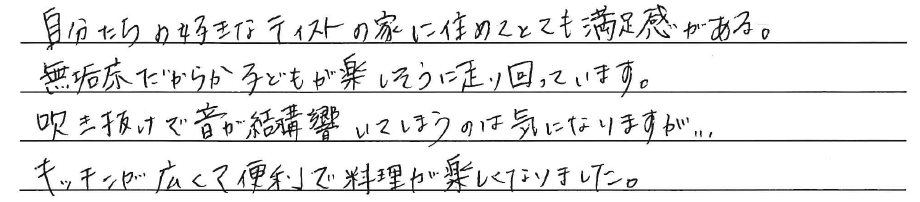 自分たちの好きなテイストの家に住めてとても満足感がある。
無垢床だからか子どもが楽しそうに走り回っています。
吹き抜けで音が結構響いてしまうのは気になりますが…
キッチンが広くて便利で料理が楽しくなりました。